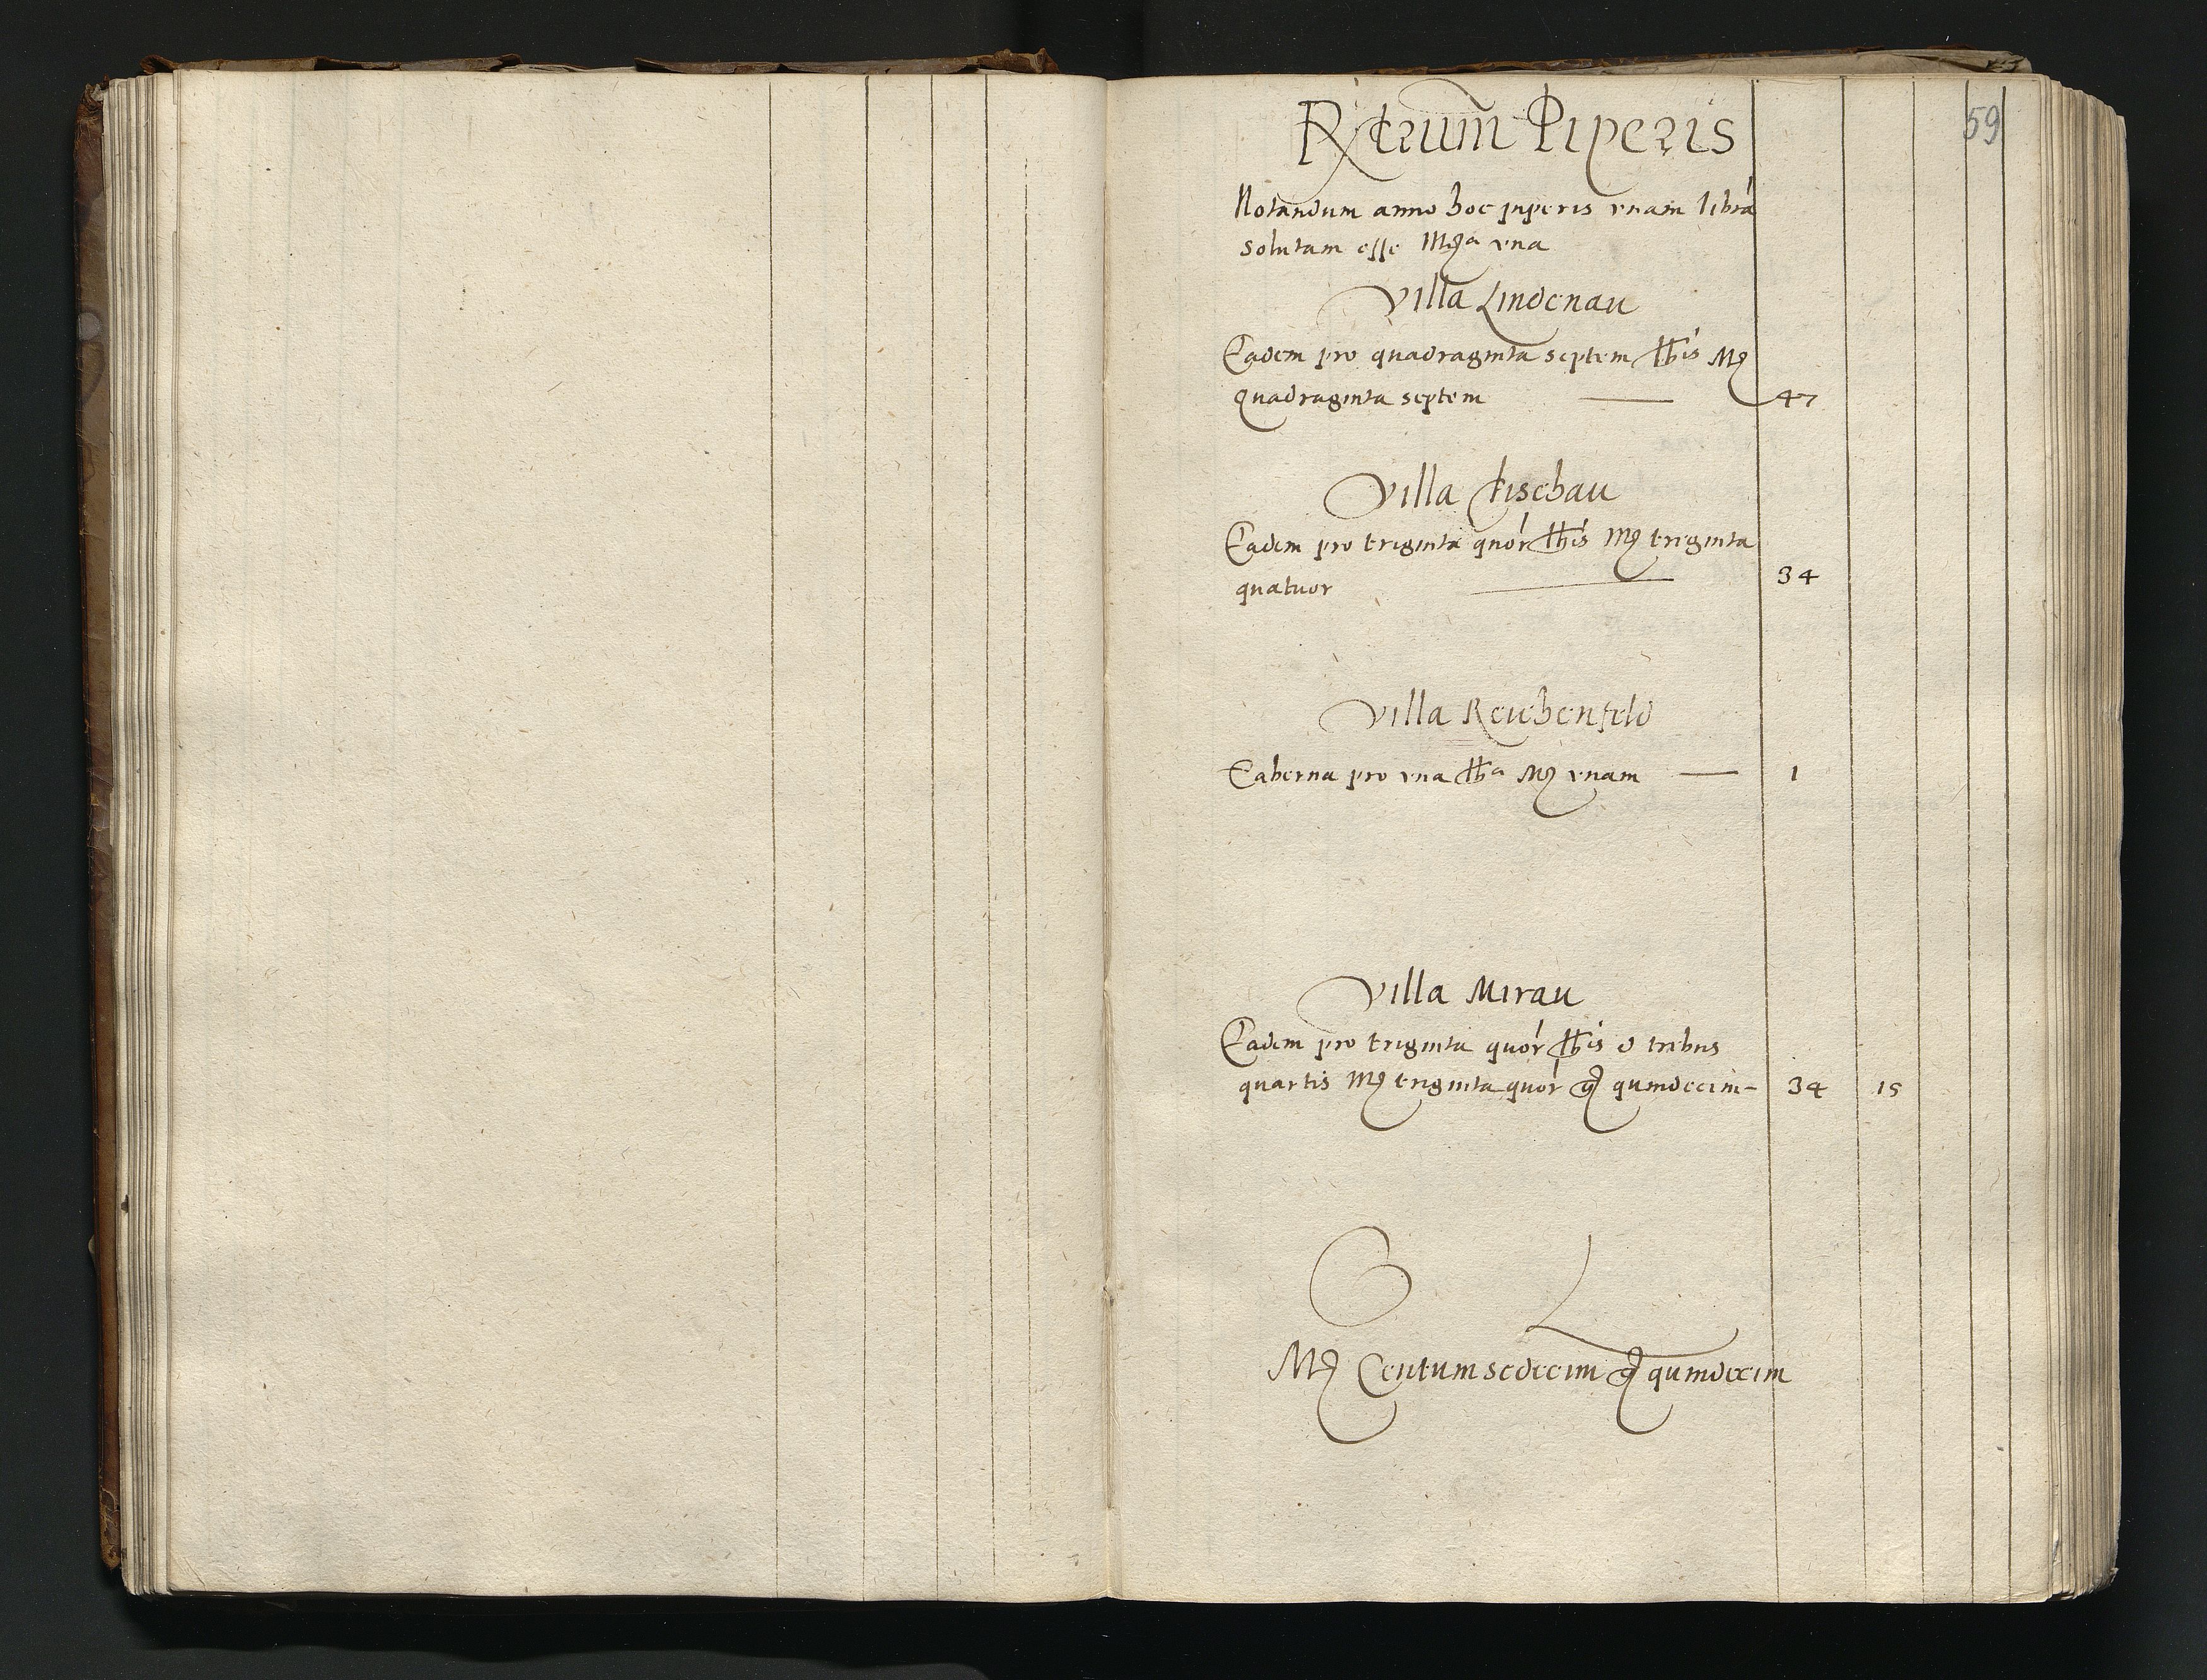 59
Rxtrum̃ Piperis
Notandum anno hoc piperis vnam librā
solutam esse Mg̃a vna
Villa Lindenau
Eadem pro quadraginta septem lb̃is Mg̃
quadraginta septem — 47
Villa Fischau
Eadem pro triginta quõr lb̃is Mg̃ triginta
quatuor — 34
Villa Reichenfeld
Taberna pro vna lb̃a Mg̃ vnam — 1
Villa Mirau
Eadem pro triginta quõr lb̃is & tribus
quartis Mg̃ triginta quõr g̃ quindecim - 34 15
Mg̃ Centum sedecim g̃ quindecim